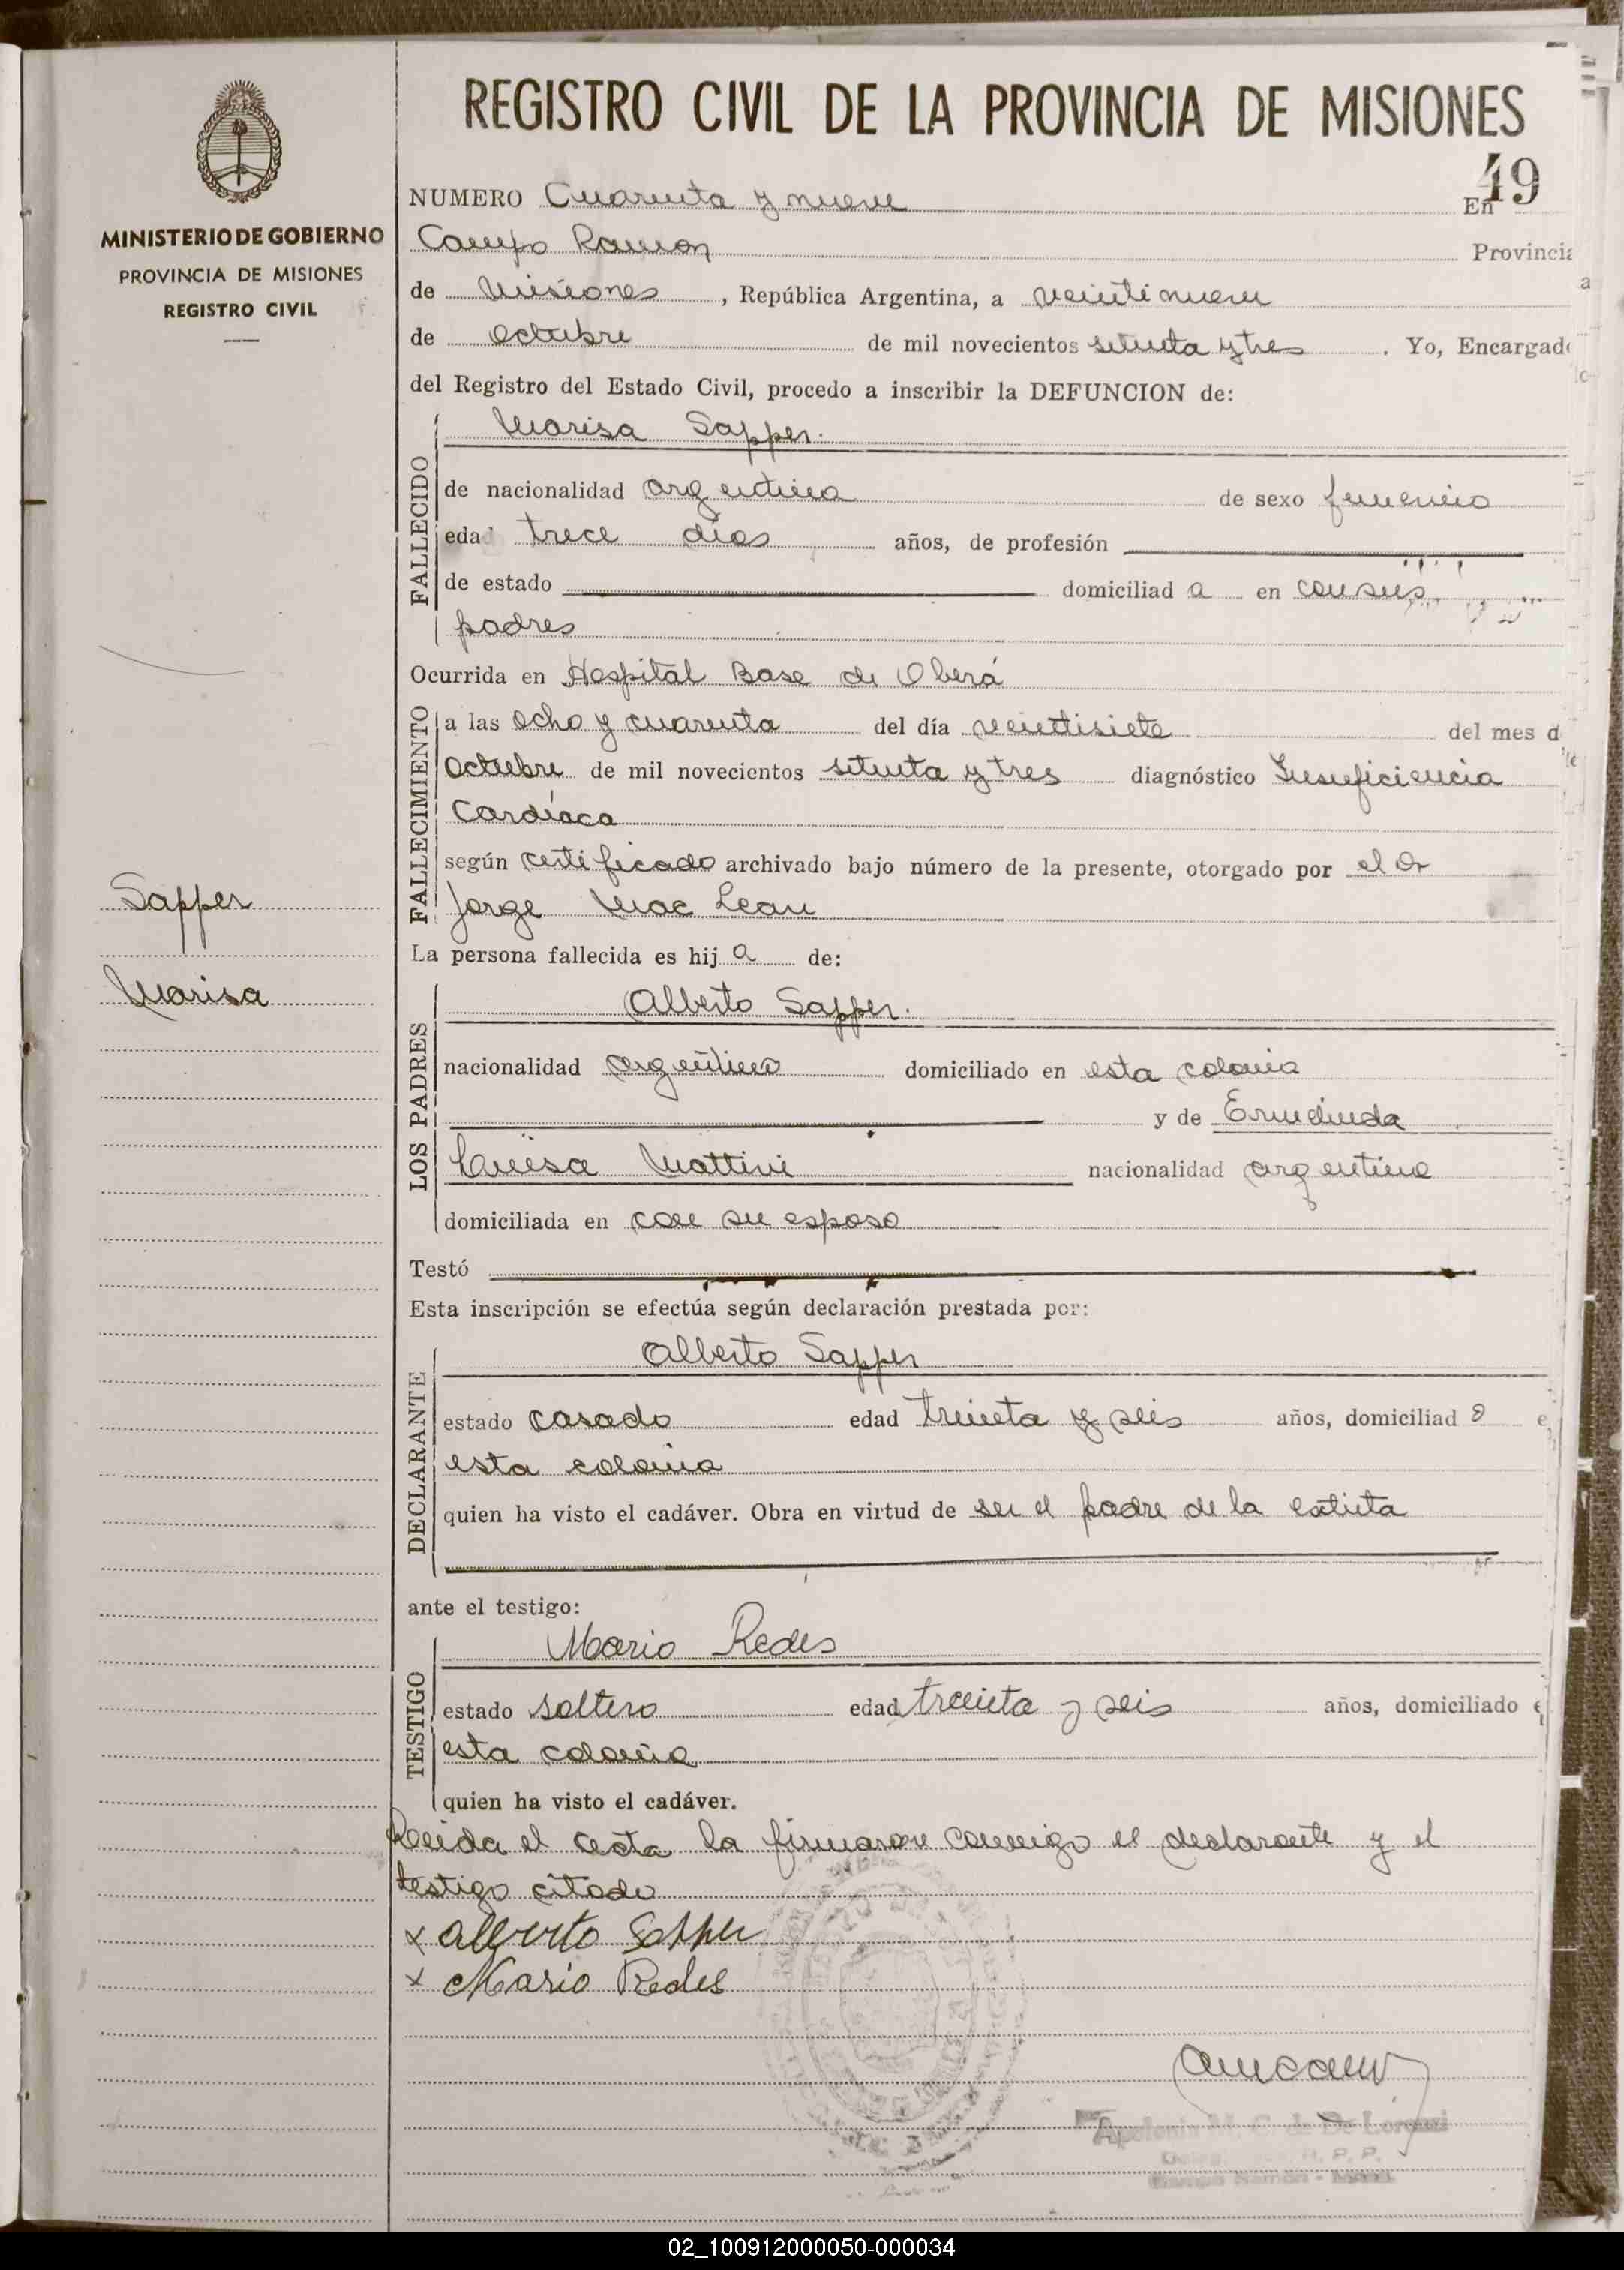 REGISTRO CIVIL DE LA PROVINCIA DE MISIONES
49
MINISTERIO DE GOBIERNO
PROVINCIA DE MISIONES
REGISTRO CIVIL
NUMERO Cuarenta y nueve En
Campo Ramon Provincia
de Misiones, República Argentina, a veintinueve
de octubre de mil novecientos setenta y tres. Yo, Encargado
del Registro del Estado Civil, procedo a inscribir la DEFUNCION de:
FALLECIDO
Marisa Sapper.
de nacionalidad argentina de sexo femenino
edad trece dias años, de profesión
de estado domiciliad a en con sus
padres
Ocurrida en Hospital Base de Oberá
FALLECIMIENTO
a las ocho y cuarenta del día veintisiete del mes d
octubre de mil novecientos setenta y tres diagnóstico Insuficiencia
Cardíaca
según certificado archivado bajo número de la presente, otorgado por el Dr
Jorge Mac Lean
Sapper
Marisa
La persona fallecida es hij a de:
LOS PADRES
Alberto Sapper.
nacionalidad argentino domiciliado en esta colonia
y de Ermelinda
Luisa Mattivi nacionalidad argentina
domiciliada en con su esposo
Testó
Esta inscripción se efectúa según declaración prestada por:
DECLARANTE
Alberto Sapper
estado casado edad treinta y seis años, domiciliad o e
esta colonia
quien ha visto el cadáver. Obra en virtud de ser el padre de la extinta
ante el testigo:
TESTIGO
Mario Redes
estado soltero edad treinta y seis años, domiciliado e
esta colonia
quien ha visto el cadáver.
Leida el acta la firmaron conmigo el declarante y el
testigo citado
x Alberto Sapper
x Mario Redes
M. C. de De Lorenzi
02_100912000050-000034